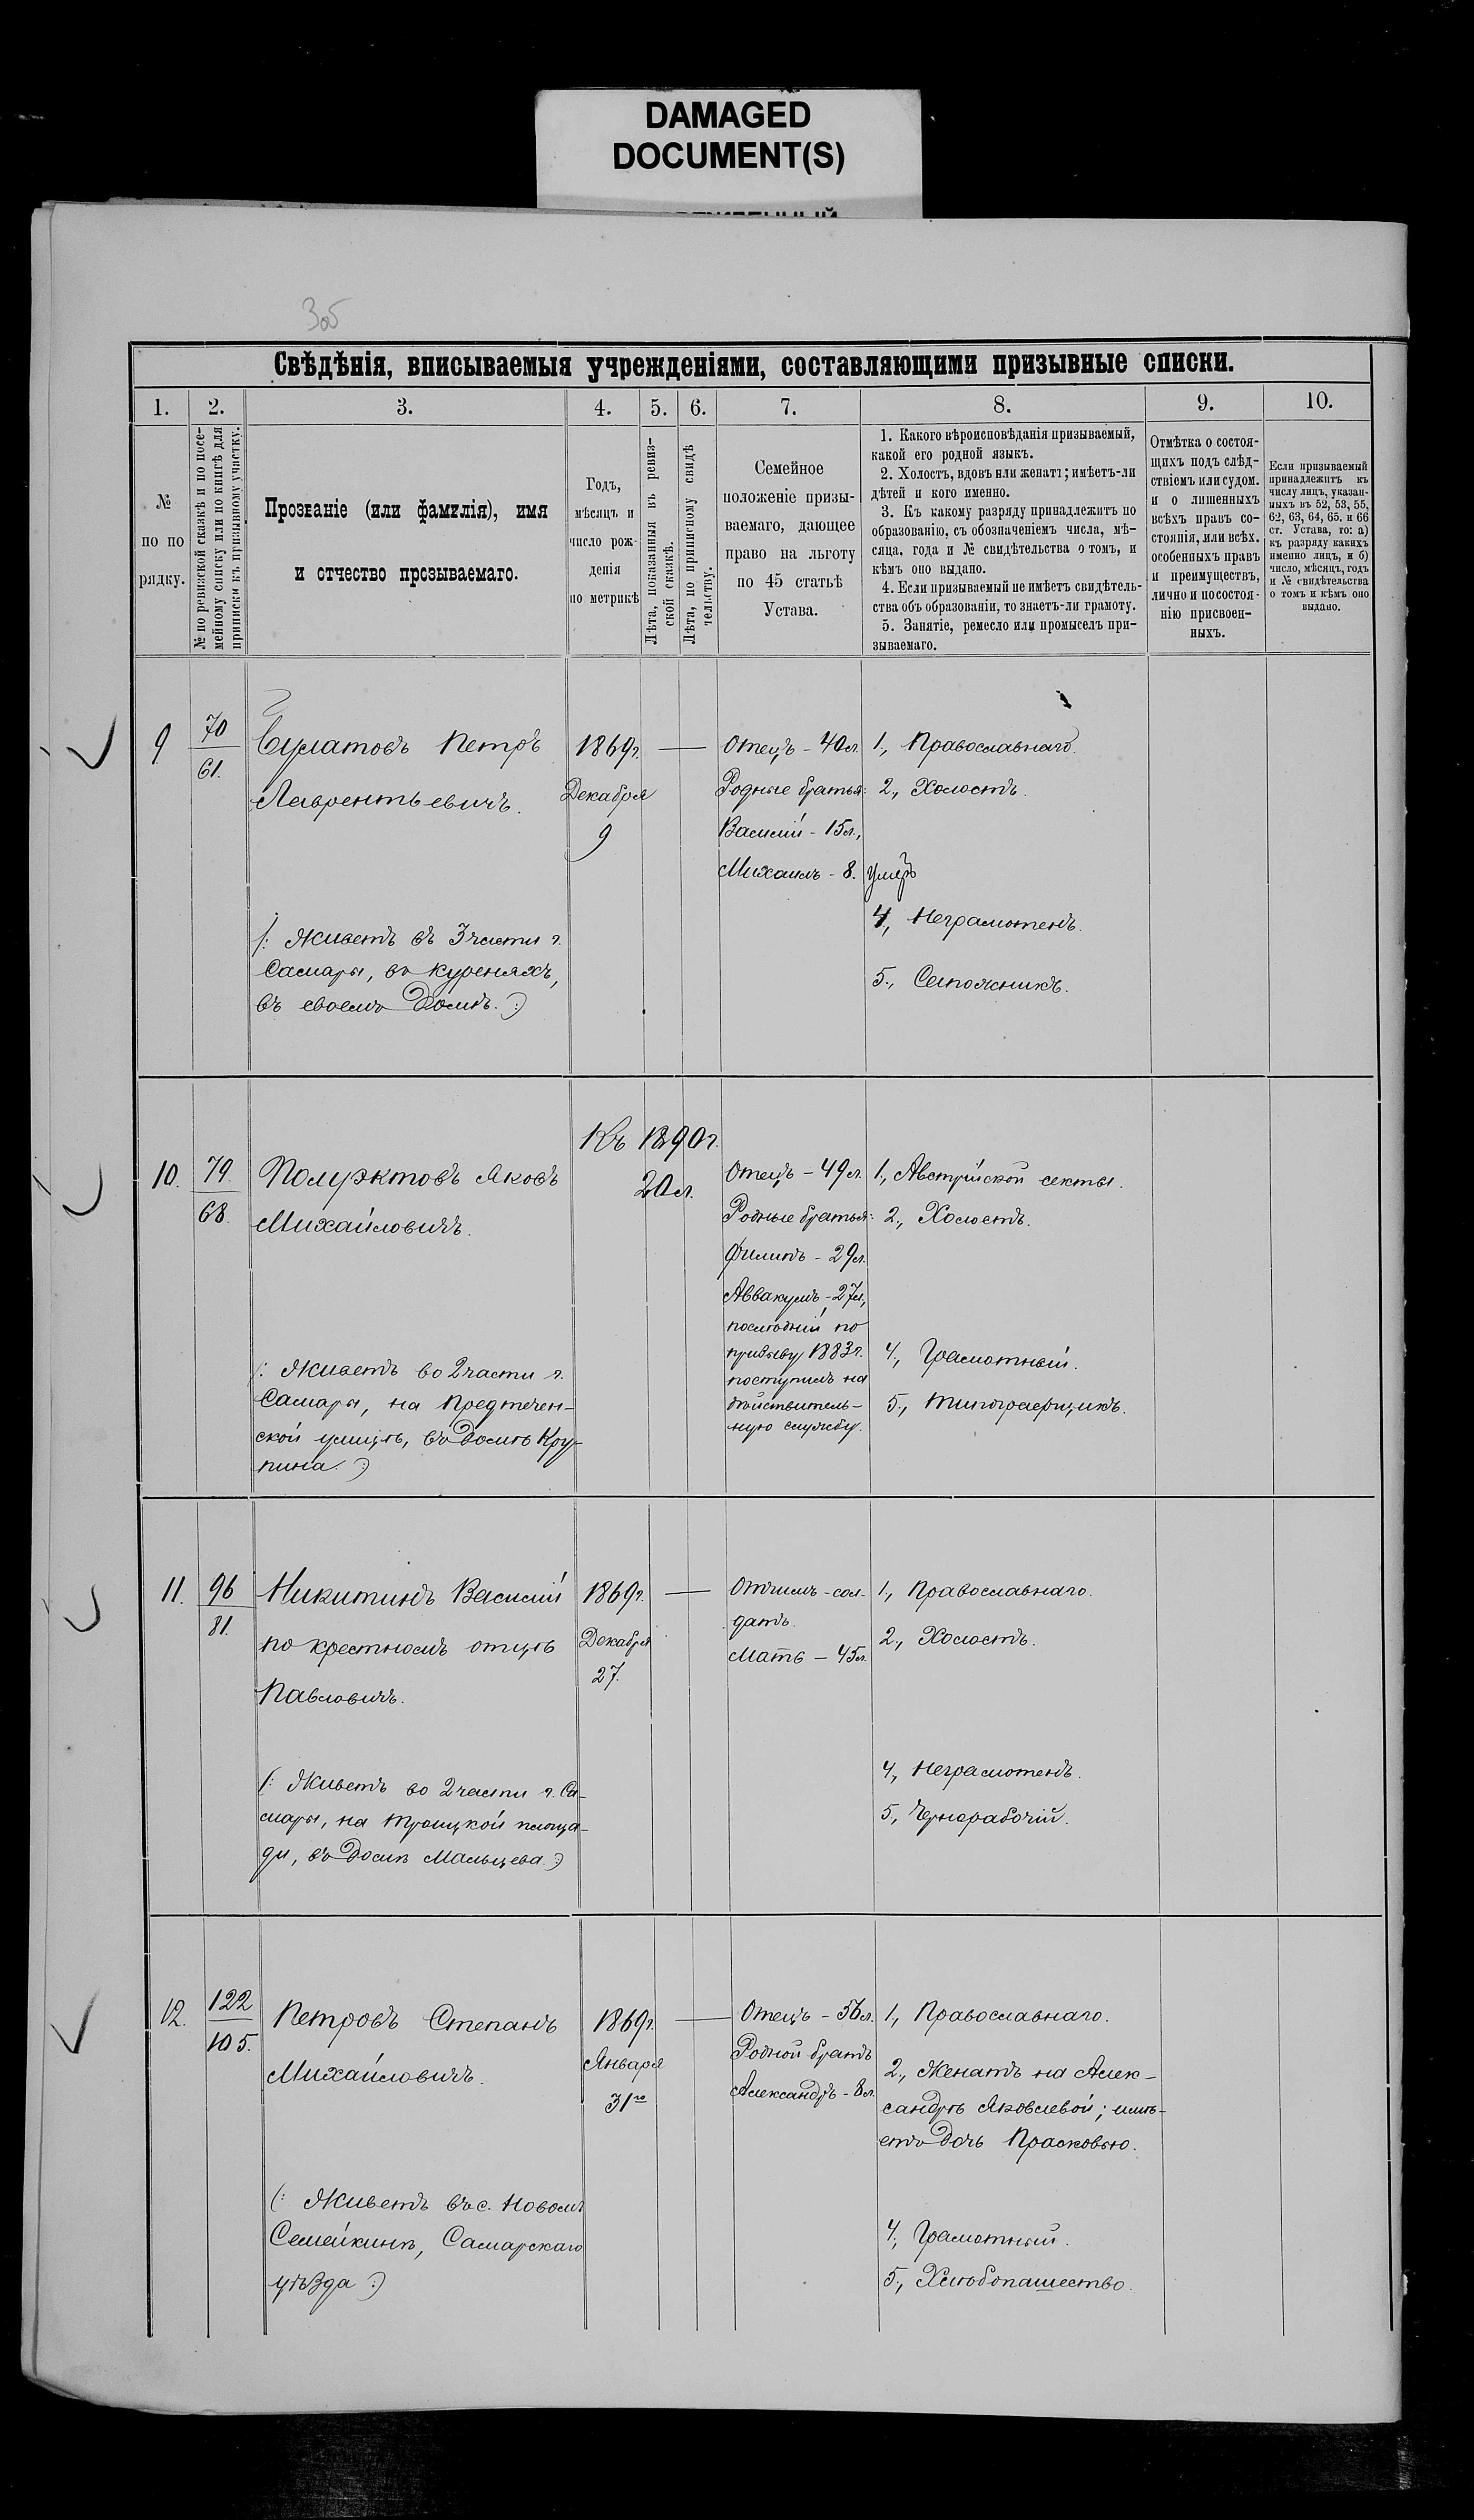 DAMAGED
DOCUMENT(S)
305
Свѣдѣнія, вписываемыя учрежденіями, составляющими призывные списки.
1. 2. 3. 4. 5. 6. 7. 8. 9. 10.
№
по по
рядку.
№ по ревизской сказкѣ и по посе-
мейному списку или по книгѣ для
приписки къ призывному участку.
Прозваніе (или фамилія), имя
и отчество прозываемаго.
Годъ,
мѣсяцъ и
число рож-
денія
по метрикѣ
Лѣта, показанныя въ ревиз-
ской сказкѣ.
Лѣта, по приписному свидѣ
тельству.
Семейное
положеніе призы-
ваемаго, дающее
право на льготу
по 45 статьѣ
Устава.
1. Какого вѣроисповѣданія призываемый,
какой его родной языкъ.
2. Холостъ, вдовъ или женатъ; имѣетъ-ли
дѣтей и кого именно.
3. Къ какому разряду принадлежитъ по
образованію, съ обозначеніемъ числа, мѣ-
сяца, года и № свидѣтельства о томъ, и
кѣмъ оно выдано.
4. Если призываемый не имѣетъ свидѣтель-
ства объ образованіи, то знаетъ-ли грамоту.
5. Занятіе, ремесло или промыселъ при-
зываемаго.
Отмѣтка о состоя-
щихъ подъ слѣд-
ствіемъ или судом.
и о лишенныхъ
всѣхъ правъ со-
стоянія, или всѣх.
особенныхъ правъ
и преимуществъ,
лично и по состоя-
нію присвоен-
ныхъ.
Если призываемый
принадлежитъ къ
числу лицъ, указан-
ныхъ въ 52, 53, 55,
62, 63, 64, 65, и 66
ст. Устава, то: а)
къ разряду какихъ
именно лицъ, и б)
число, мѣсяцъ, годъ
и № свидѣтельства
о томъ и кѣмъ оно
выдано.
9
70
61.
Петръ
Лаврентьевичъ.
(: Живетъ въ 3 части г.
Самары, въ куреняхъ,
въ своемъ домѣ. :)
1869г.
Декабря
9
Отецъ – 40 л.
Родные братья:
Василій – 15 л.,
Михаилъ – 8. умеръ
1., Православнаго.
2., Холостъ.
4., Неграмотенъ.
5., Сапожникъ.
10.
79.
68.
Полуэктовъ Яковъ
Михайловичъ.
(: Живетъ во 2 части г.
Самары, на Предтечен-
ской улицѣ, въ домѣ Кру-
пина. :)
Къ 1890 г.
20 л.
Отецъ – 49 л.
Родные братья:
Филипъ – 29 л.
Аввакумъ – 27 л.,
послѣдній по
призыву 1883 г.
поступилъ на
дѣйствитель-
ную службу.
1., Австрійской секты.
2., Холостъ.
4., Грамотный.
5., Типографщикъ.
11.
96
81.
Никитинъ Василій
по крестномъ отцѣ
Павловичъ.
(: Живетъ во 2 части г. Са-
мары, на Троицкой площа-
ди, въ домѣ Мальцева. :)
1869г.
Декабря
27.
Отчимъ – сол-
датъ.
Мать – 45 л.
1., Православнаго.
2., Холостъ.
4., Неграмотенъ.
5., Чернорабочій.
12.
122
105.
Петровъ Степанъ
Михайловичъ.
(: Живетъ въ с. Новомъ
Семейкинѣ, Самарскаго
уѣзда :)
1869г.
Января
31го
Отецъ – 56 л.
Родной братъ
Александръ – 8 л.
1., Православнаго.
2., Женатъ на Алек-
сандрѣ Яковлевой; имѣ-
етъ дочь Прасковью.
4., Грамотный.
5., Хлѣбопашество.